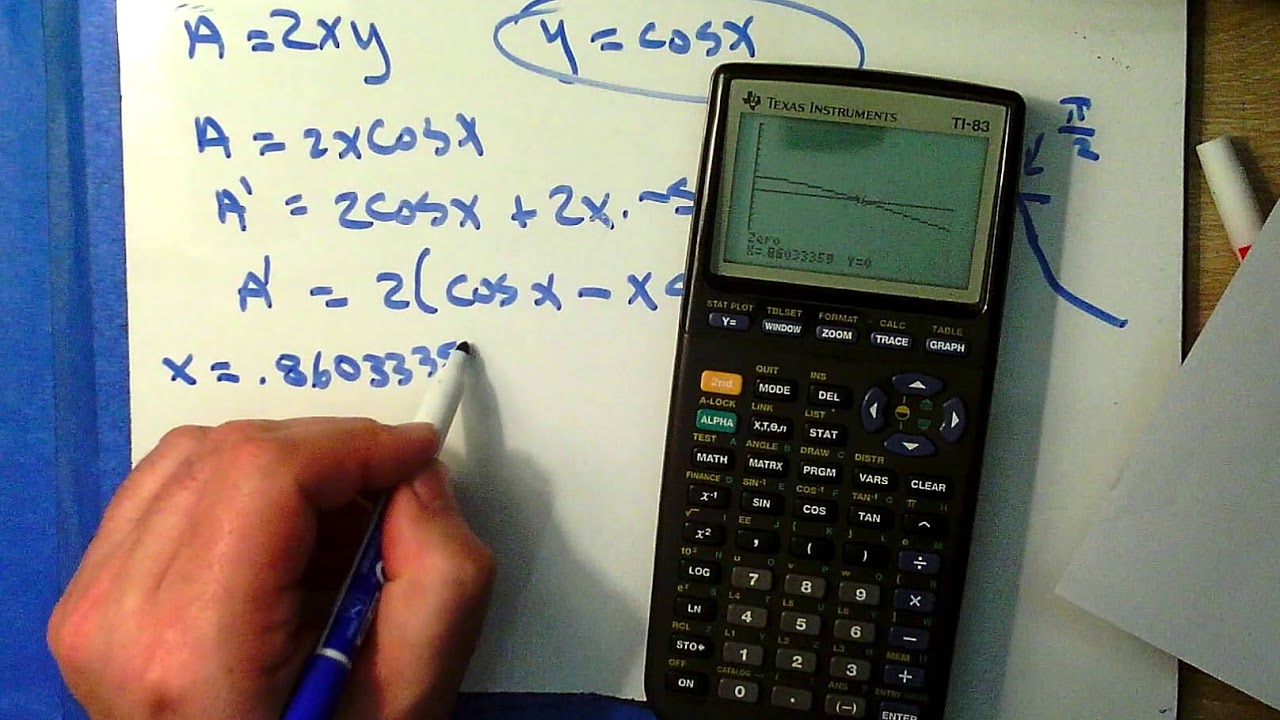 A = 2xy
y = cosx
A = 2xcosx
A' = 2cosx + 2x. -s
A' = 2(cosx - x
x = .8603335
π
2
TEXAS INSTRUMENTS
TI-83
Zero
X=.86033359 Y=0
STAT PLOT TBLSET FORMAT CALC TABLE
Y= WINDOW ZOOM TRACE GRAPH
QUIT INS
2nd MODE DEL
A-LOCK LINK LIST
ALPHA X,T,θ,n STAT
TEST A ANGLE B DRAW C DISTR
MATH MATRX PRGM VARS CLEAR
FINANCE D SIN-1 E COS-1 F TAN-1 G π H
x-1 SIN COS TAN ^
√ I EE J { K } L e M
x² , ( ) ÷
10x N u O v P w Q [ R
LOG 7 8 9 ×
ex S L4 T L5 U L6 V ] W
LN 4 5 6 −
RCL X L1 Y L2 Z L3 θ MEM "
STO▸ 1 2 3 +
OFF CATALOG : ANS ? ENTRY SOLVE
ON 0 . (−) ENTER